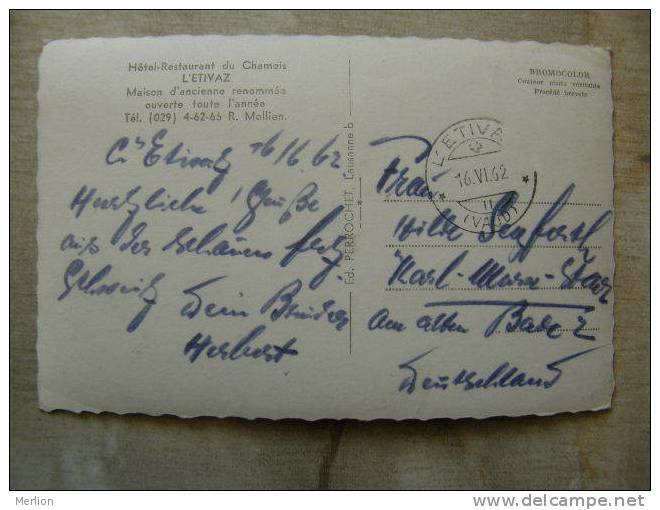 Hôtel-Restaurant du Chamois
L'ETIVAZ
Maison d'ancienne renommée
ouverte toute l'année
Tél. (029) 4-62-65 R. Mollien.
BROMOCOLOR
Couleur photo véritable
Procédé breveté
L'ETIVAZ
16.VI.62
11
(VAUD)
Ed. PERROCHET, Lausanne b
L'Etivaz 16/6.62
Herzliche Grüße
aus der schönen
Schweiz
Dein Bruder
Herbert
Frau
Hilde Seyferth
Karl-Marx-Stadt
Am alten Bad 2
Deutschland
Merlion
www.delcampe.net